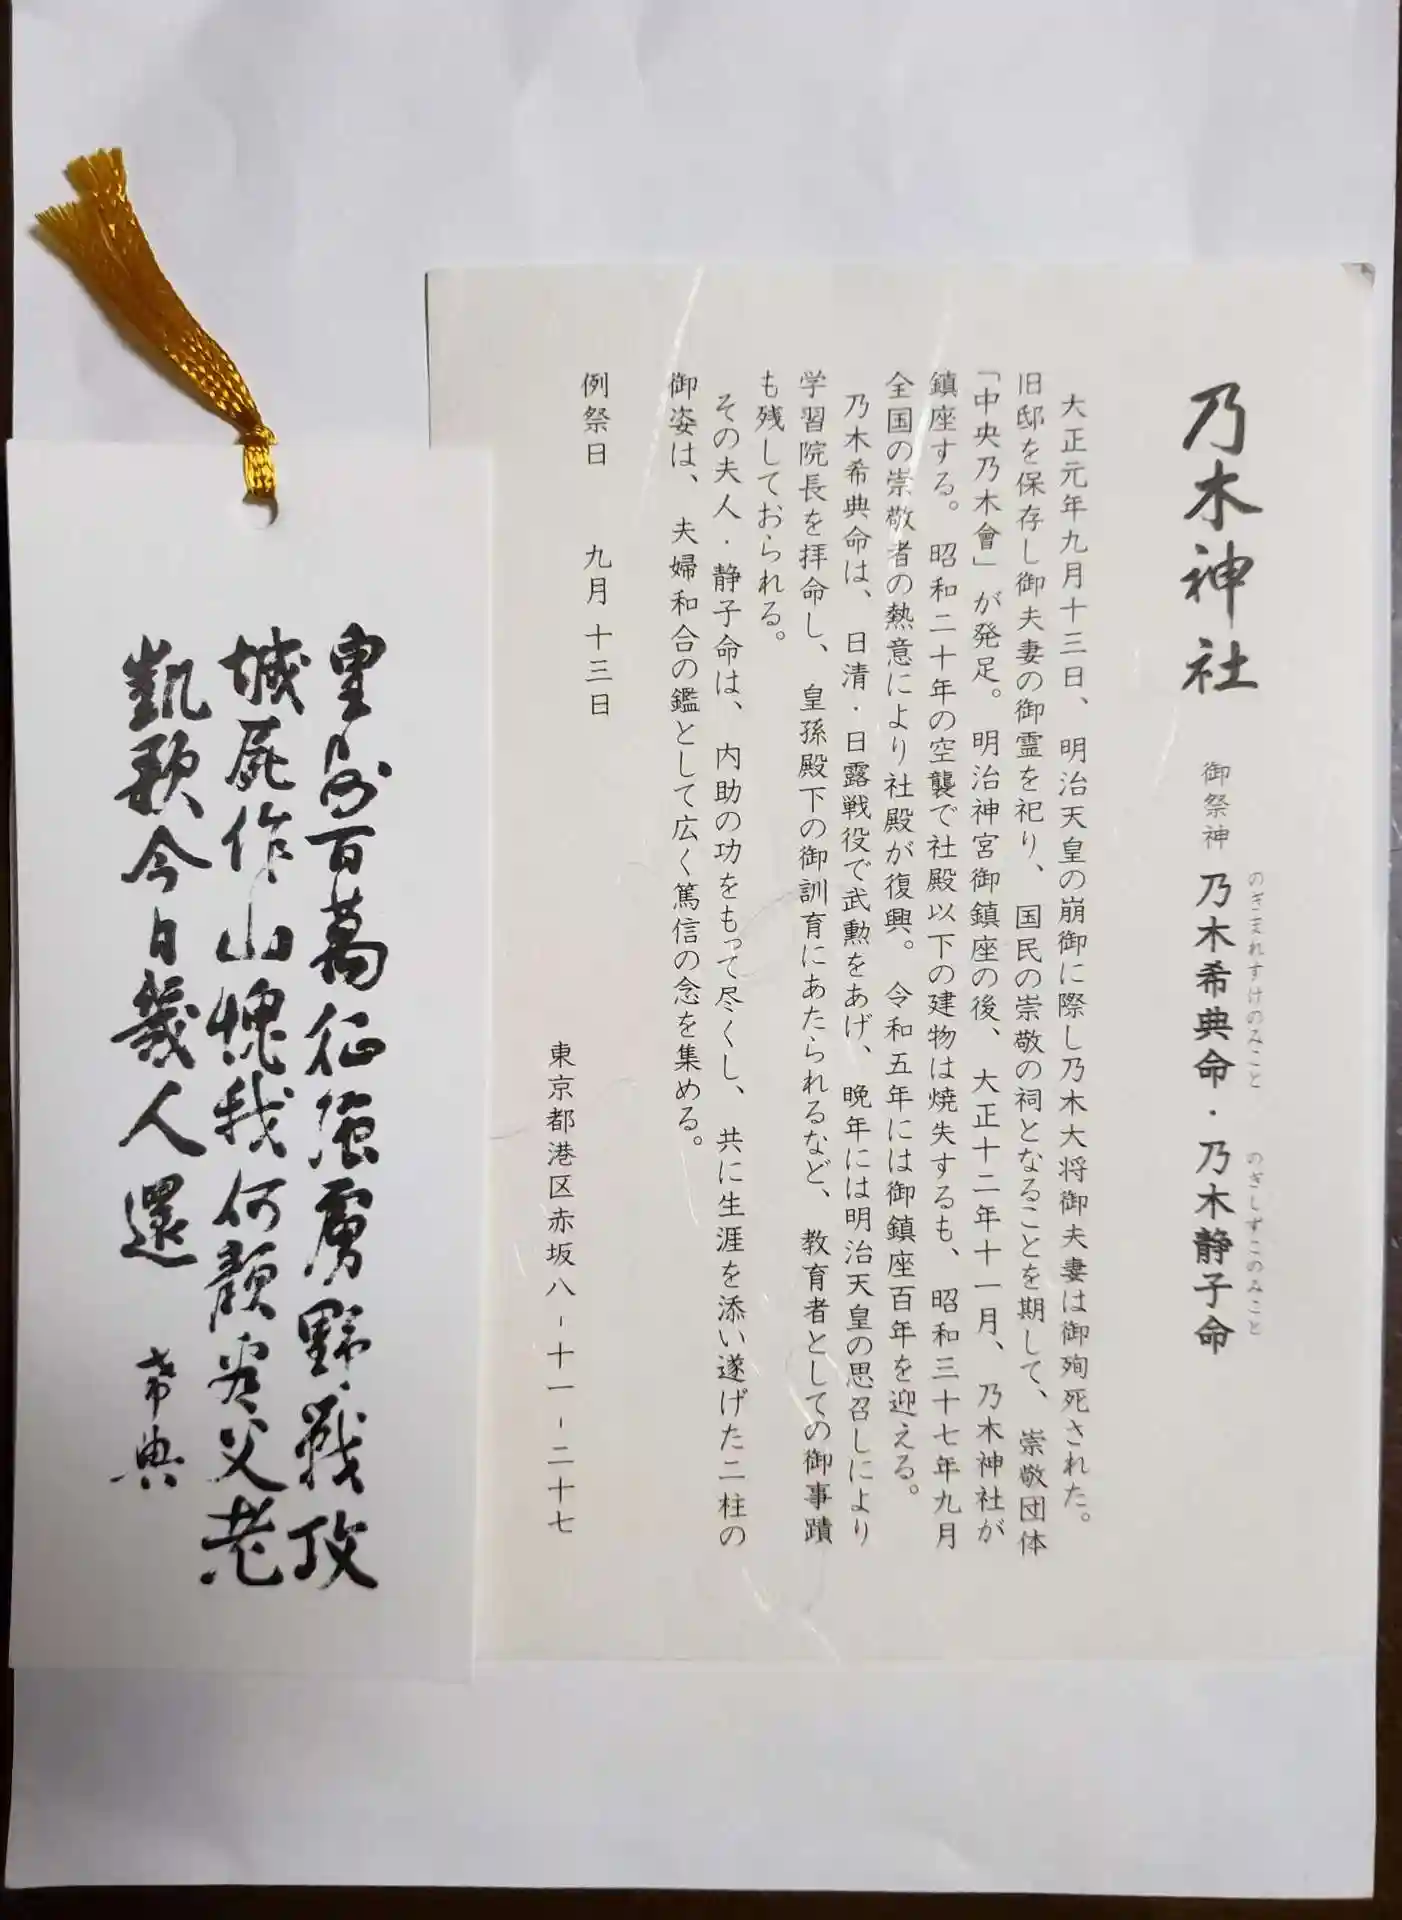 乃木神社
御祭神 乃木希典命・乃木静子命
のぎまれすけのみこと のぎしずこのみこと
大正元年九月十三日、明治天皇の崩御に際し乃木大将御夫妻は御殉死された。
旧邸を保存し御夫妻の御霊を祀り、国民の崇敬の祠となることを期して、崇敬団体
「中央乃木會」が発足。明治神宮御鎮座の後、大正十二年十一月、乃木神社が
鎮座する。昭和二十年の空襲で社殿以下の建物は焼失するも、昭和三十七年九月
全国の崇敬者の熱意により社殿が復興。令和五年には御鎮座百年を迎える。
乃木希典命は、日清・日露戦役で武勲をあげ、晩年には明治天皇の思召しにより
学習院長を拝命し、皇孫殿下の御訓育にあたられるなど、教育者としての御事蹟
も残しておられる。
その夫人・静子命は、内助の功をもって尽くし、共に生涯を添い遂げた二柱の
御姿は、夫婦和合の鑑として広く篤信の念を集める。
例祭日 九月十三日
東京都港区赤坂八-十一-二十七
皇師百萬征強虜野戰攻
城屍作山愧我何顔看父老
凱歌今日幾人還
希典